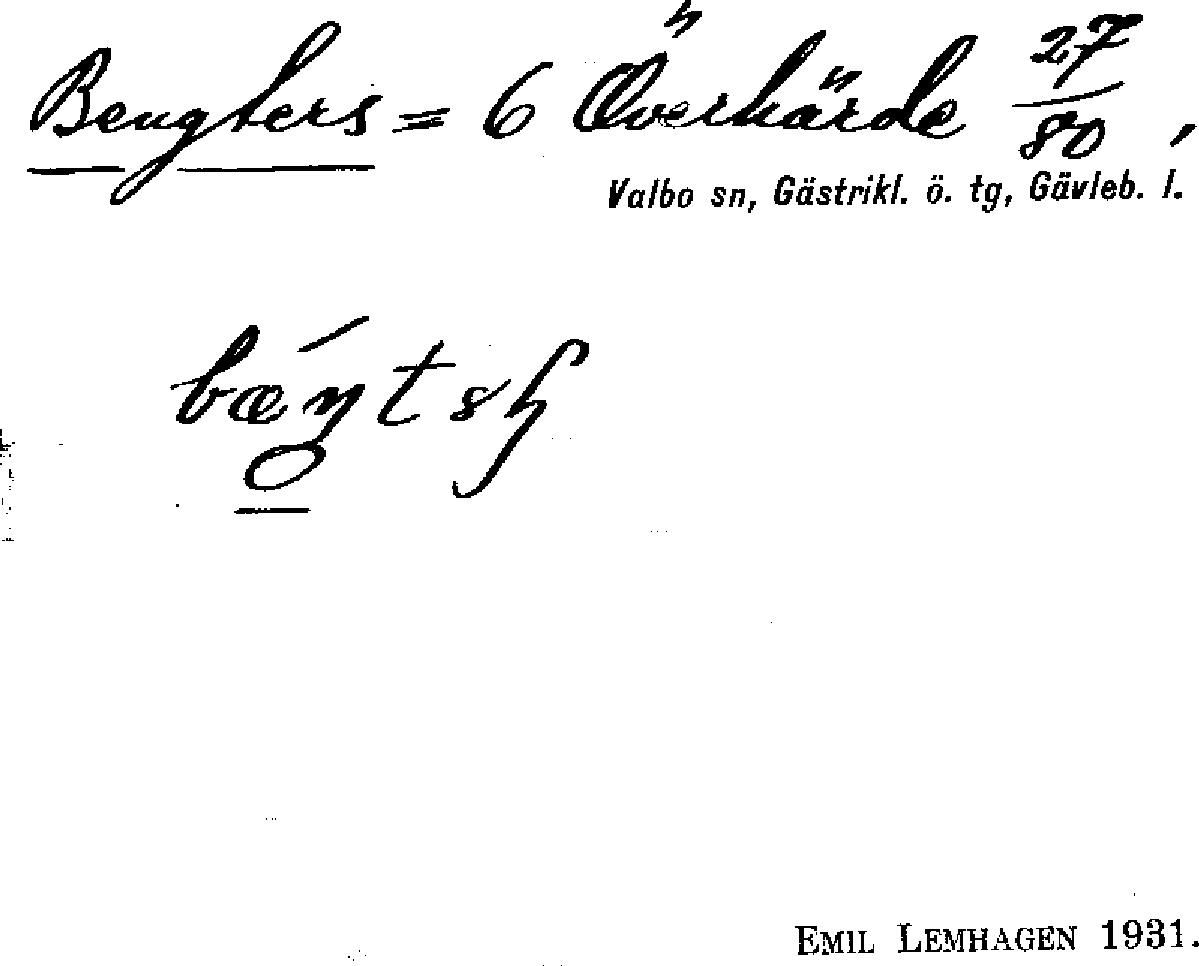 Bengters = 6 Överhärde 27/80,
Valbo sn, Gästrikl. ö. tg, Gävleb. l.
EMIL LEMHAGEN 1931.